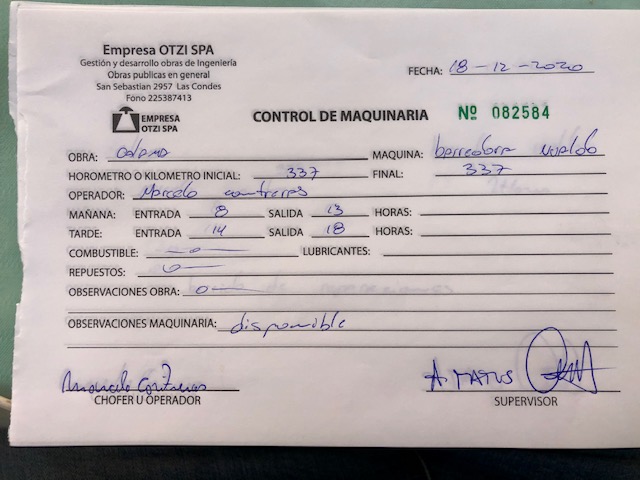 Empresa OTZI SPA
Gestión y desarrollo obras de Ingeniería
Obras publicas en general
San Sebastian 2957 Las Condes
Fono 225387413
EMPRESA
OTZI SPA
FECHA: 18-12-2020
CONTROL DE MAQUINARIA Nº 082584
OBRA: MAQUINA:
HOROMETRO O KILOMETRO INICIAL: 337 FINAL: 337
OPERADOR: Marcelo contreras
MAÑANA: ENTRADA 8 SALIDA 13 HORAS:
TARDE: ENTRADA 14 SALIDA 18 HORAS:
COMBUSTIBLE: -0- LUBRICANTES:
REPUESTOS: 0
OBSERVACIONES OBRA: 0
OBSERVACIONES MAQUINARIA: disponible
A. MATUS
CHOFER U OPERADOR SUPERVISOR